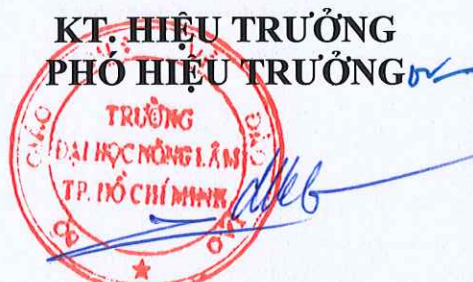 KT. HIỆU TRƯỞNG
PHÓ HIỆU TRƯỞNG
TRƯỜNG
ĐẠI HỌC NÔNG LÂM
TP. HỒ CHÍ MINH